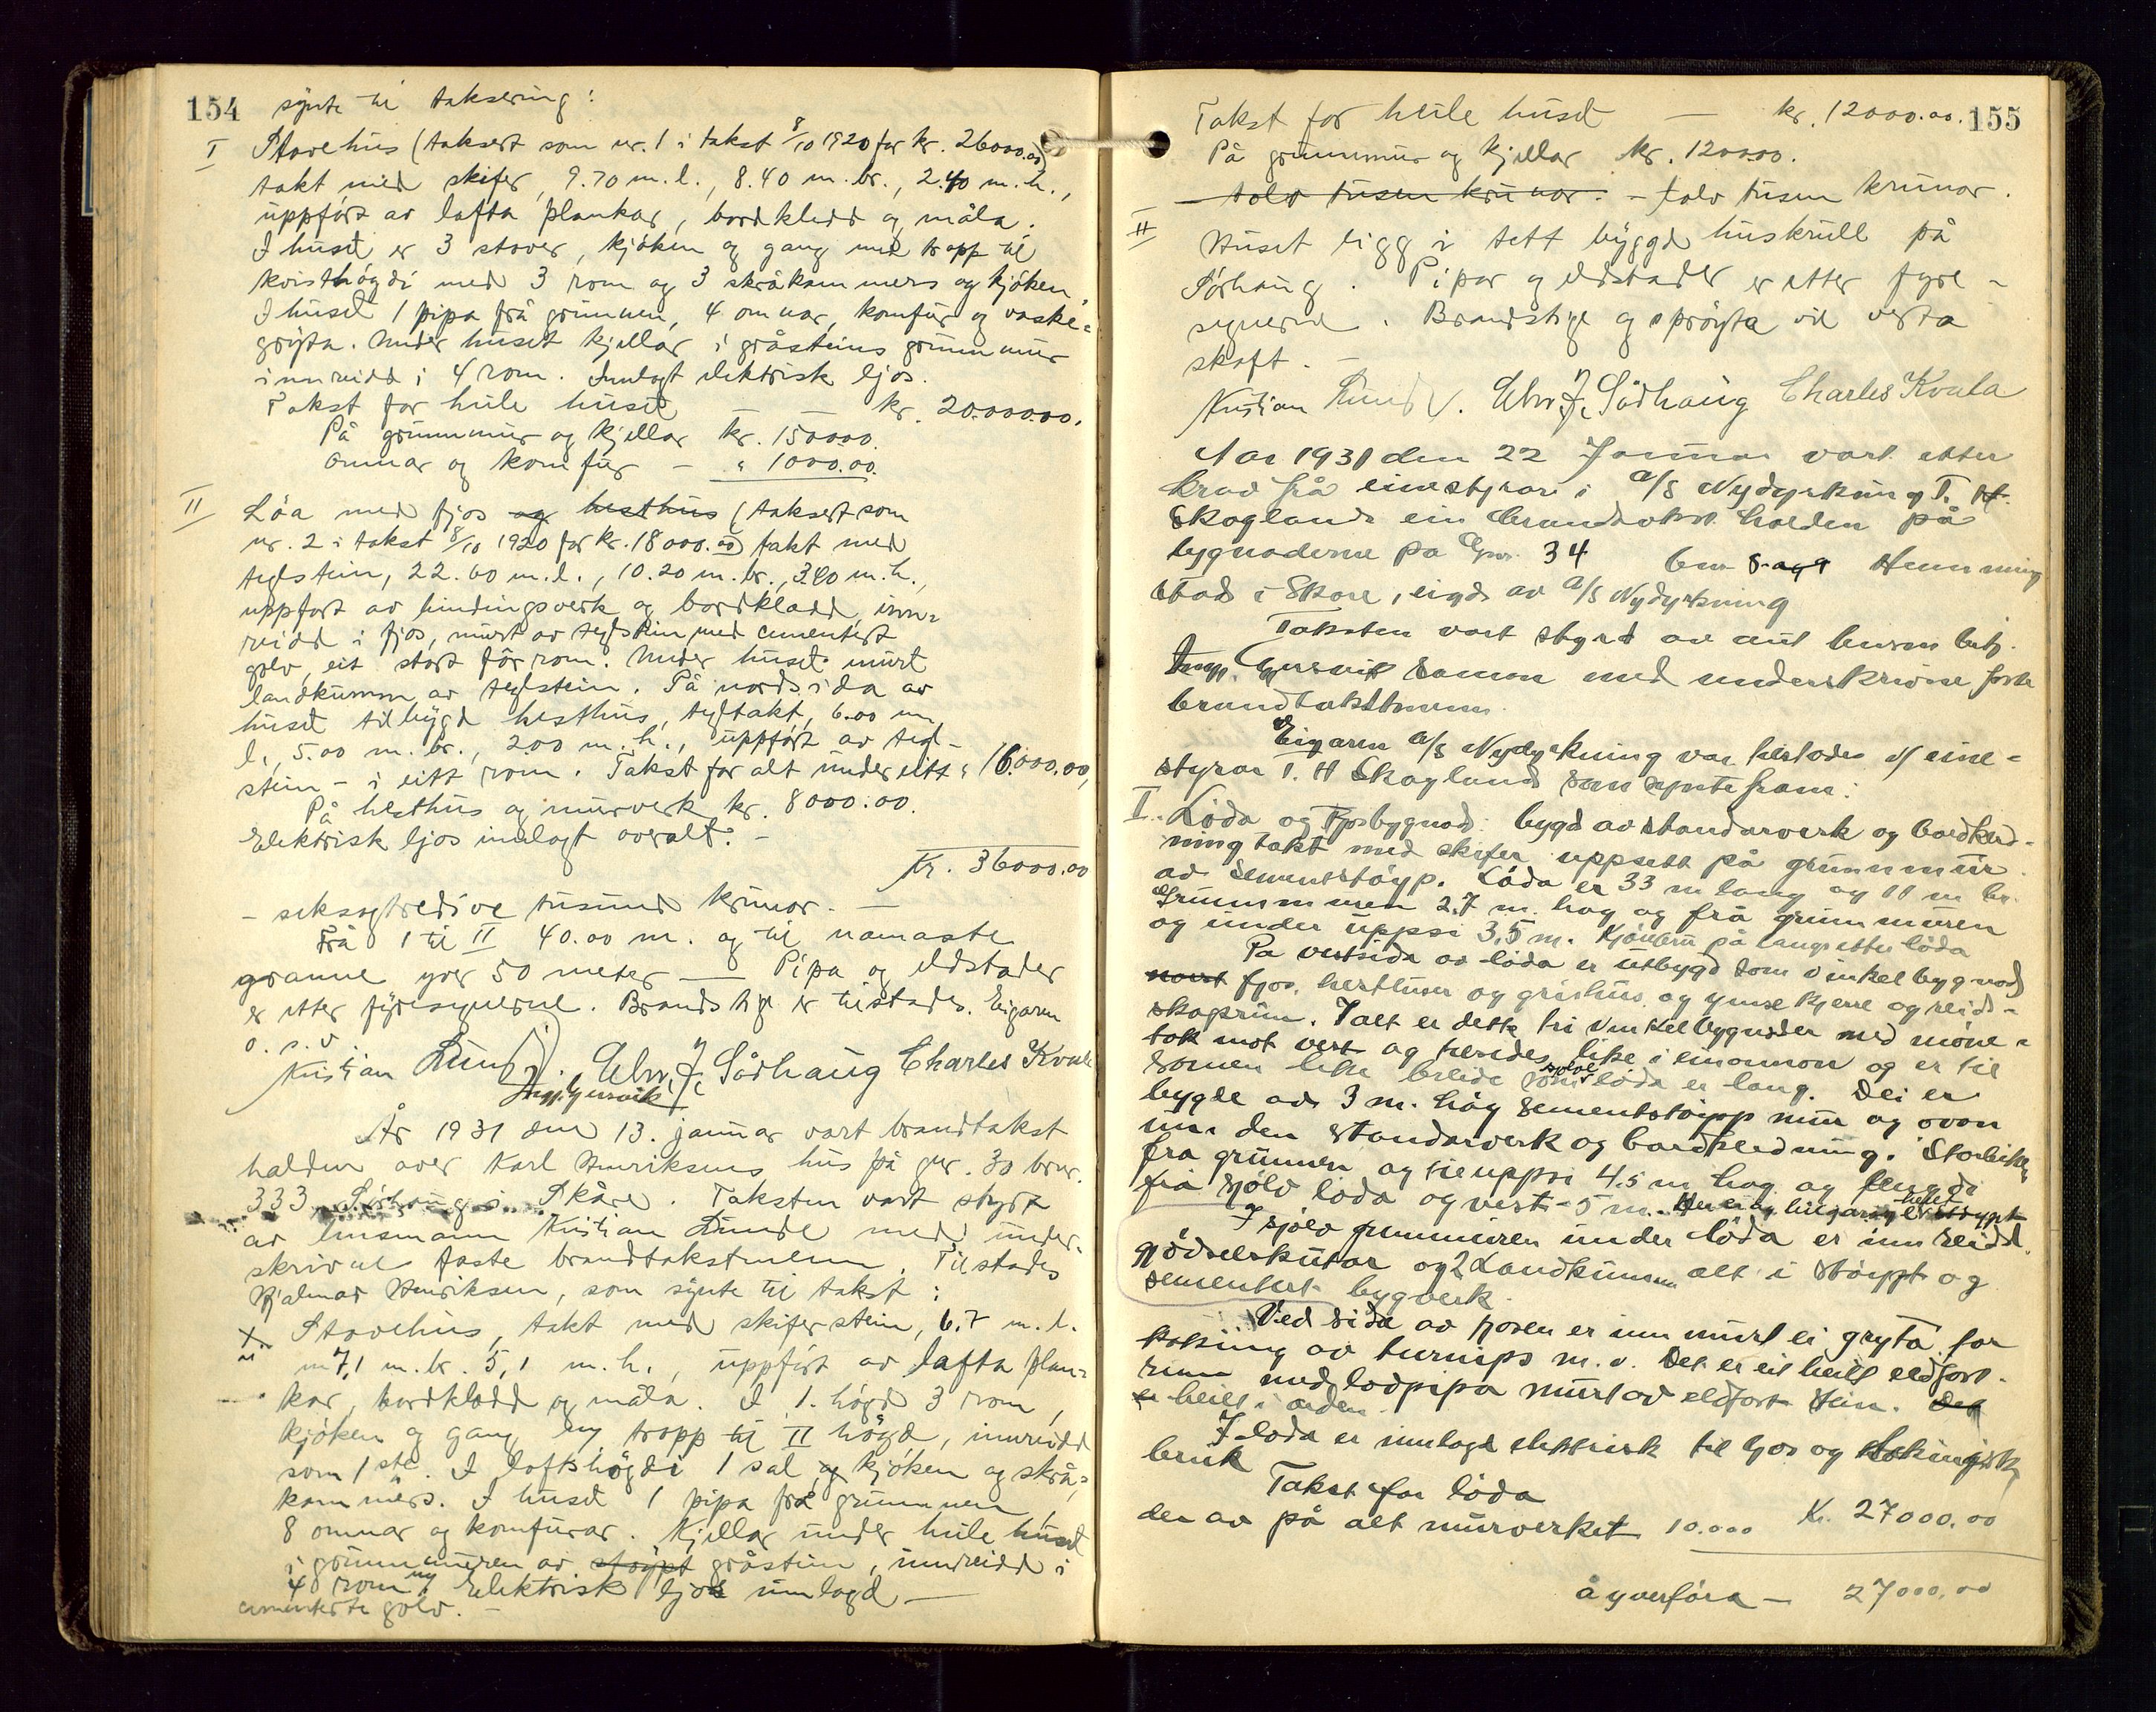 154
synte til taksering:
I Stovehus (taksert som nr. 1 i takst 8/10 1920 for kr. 26000.00)
takt med skifer, 9.70 m. l., 8.40 m. br., 2.40 m. h.,
uppført av lafta plankar, bordkledd og måla.
I huset er 3 stover, kjøken og gang med trapp til
kvisthøgdi med 3 rom og 3 skråkammers og kjøken.
I huset 1 pipa frå grunnen, 4 omnar, komfur og vaske-
gryta. Under huset kjellar i gråsteins grunnmur
innreidd i 4 rom. Innlagt elektrisk ljos.
Takst for heile huset — — kr. 20.000.00.
På grunnmur og kjellar kr. 1500.00.
omnar og komfur — " 1000.00.
II Løa med fjos og hesthus (taksert som
nr. 2 i takst 8/10 1920 for kr. 18000.00) takt med
teglstein, 22.60 m. l., 10.20 m. br., 3.40 m. h.,
uppført av bindingsverk og bordkledd, inn-
reidd i fjos, murt av teglstein med cementert
golv, eit stort fôrrom. Under huset murt
landkumm av teglstein. På nordsida av
huset tilbygd hesthus, tegltakt, 6.00 m.
l., 5.00 m. br., 2.00 m. h., uppført av tegl-
stein - i eitt rom. Takst for alt under eitt " 16.000.00,
På hesthus og murverk kr. 8000.00.
Elektrisk ljos innlagt overalt. -
Kr. 36000.00
- seksogtredive tusund krunor. -
Frå I til II 40.00 m. og til næmaste
granne yver 50 meter — Pipa og eldstader
er etter fyresegnerne. Brandstige er tilstades. Eigaren
o. s. v.
Kristian Lunde. Elm. J. Sørhaug Charles Kvala
Ingv. Gjersvik
År 1931 den 13. januar vart brandtakst
halden over Karl Henriksens hus på gnr. 30 brnr.
333 Sørhaug i Skåre. Taksten vart styrt
av lensmann Kristian Lunde med under-
skrivne faste brandtakstmenn. Tilstades
Hjalmar Henriksen, som synte til takst:
Stovehus, takt med skiferstein, 6.7 m. l.
7,1 m. br. 5,1 m. h., uppført av lafta plan-
kar, bordkledd og måla. I 1. høgd 3 rom,
kjøken og gang og trapp til II høgd, innreidd
som 1ste. I loftshøgdi 1 sal og kjøken og skrå-
kammers. I huset 1 pipa frå grunnen,
8 omnar og komfurar. Kjellar under heile huset
i grunnmuren av støypt gråstein, innreidd i
4 rom og Elektrisk ljos innlagd —
cementerte golv. -
155
Takst for heile huset — kr. 12000.00.
På grunnmur og kjellar kr. 1200.00.
- tolv tusen krunor. - tolv tusen krunor.
II Huset ligg i tett bygd huskrull på
Sørhaug. Pipor og eldstader er etter fyre-
segnerne. Brandstige og sprøyta vil verta
skaft. -
Kristian Lunde. Elm. J. Sørhaug Charles Kvala
Aar 1931 den 22 Januar vart etter
krav frå einestyrar i A/S Nydyrkning T. H.
Skogland ein brandtakst halden på
bygnaderne på Gnr. 34 bnr 8 og 9 Hemming
stad i Skåre, eigd av A/S Nydyrkning
Taksten vart styrd av aut lensm betj.
Ingv. Gjersvik saman med underskrivne faste
brandtakstmenn.
Eigaren A/S Nydyrkning var tilstades v/ eine-
styrar T. H Skogland som synte fram:
I. Løda og Fjosbygnad: bygd av standarverk og bordkled-
ning takt med skifer uppsett på grunnmur
av sementstøyp. Løda er 33 m lang og 11 m br.
Grunnmuren 2,7 m. høg og frå grunnmuren
og under uppsi 3,5 m. Kjørebru på langs etter løda
På vestsida av løda er utbygd som vinkelbygnad
fjos, hesthus og grishus og ymse kjerre og reid-
skaprum. I alt er dette tri vinkelbygnader med møne-
tak mot vest og tilsides like i einannan og er til
saman like breide som sjølve løda er lang. Dei er
bygde av 3 m. høg sementstøypp mur og ovan
um den standarverk og bordkledning.
frå grunnen og til uppsi 4,5 m høg og lengdi
frå sjølv løda og vest - 5 m.
I sjølv grunnmuren under løda er innreidd
gjødselskutar og 2 Landkummar alt i støypt og
sementert bygverk.
Ved sida av fjosen er inn murt ei gryta for
koking av turnips m. v. Det er eit heilt eldfast-
rum med lodpipa murt av eldfast stein. Det
er heilt i orden
I løda er innlagd elektrisk til ljos og
bruk
Takst for løda
der av på alt murverket 10.000 Kr. 27000.00
å yverføra — 27000.00